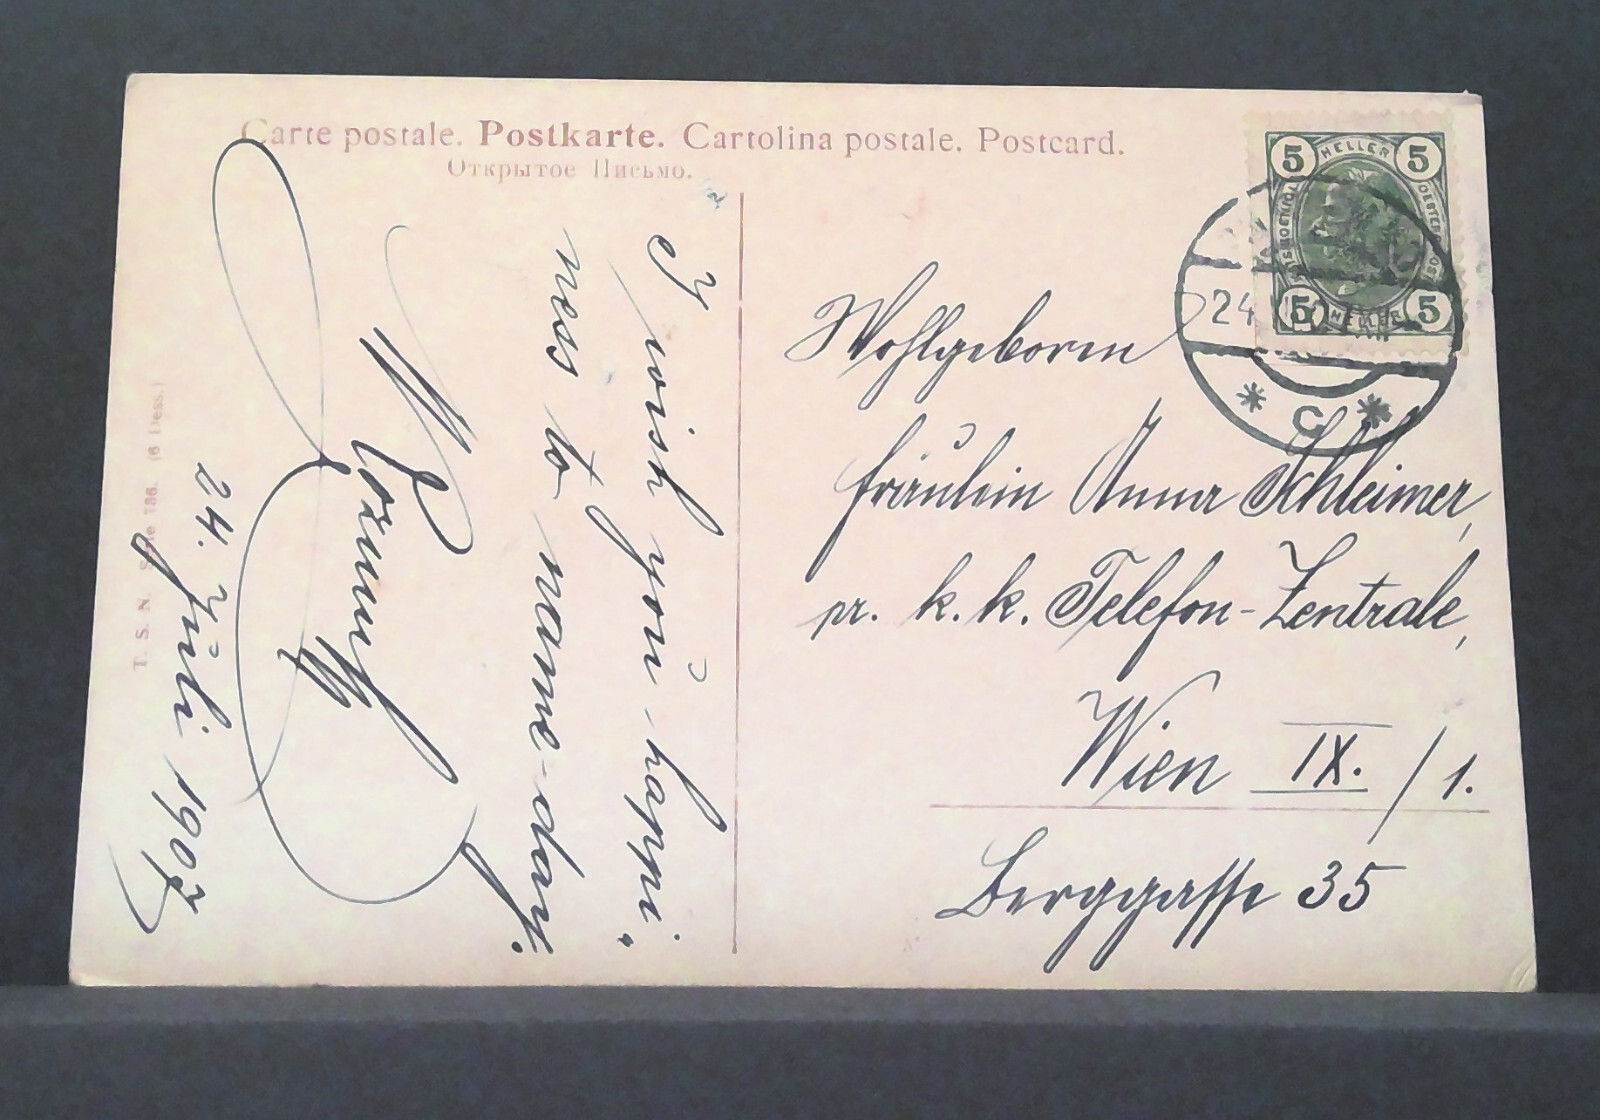 Carte postale. Postkarte. Cartolina postale. Postcard.
Открытое Письмо.
5 HELLER 5
5 HELLER 5
24
* C *
Wohlgeboren
Fräulein Anna Schleimer,
pr. k. k. Telefon-Zentrale,
Wien IX. / 1.
Berggasse 35
I wish you happi„
ness to name-day.
24. Juli 1907
T. S. N. Serie 786. (6 Dess.)